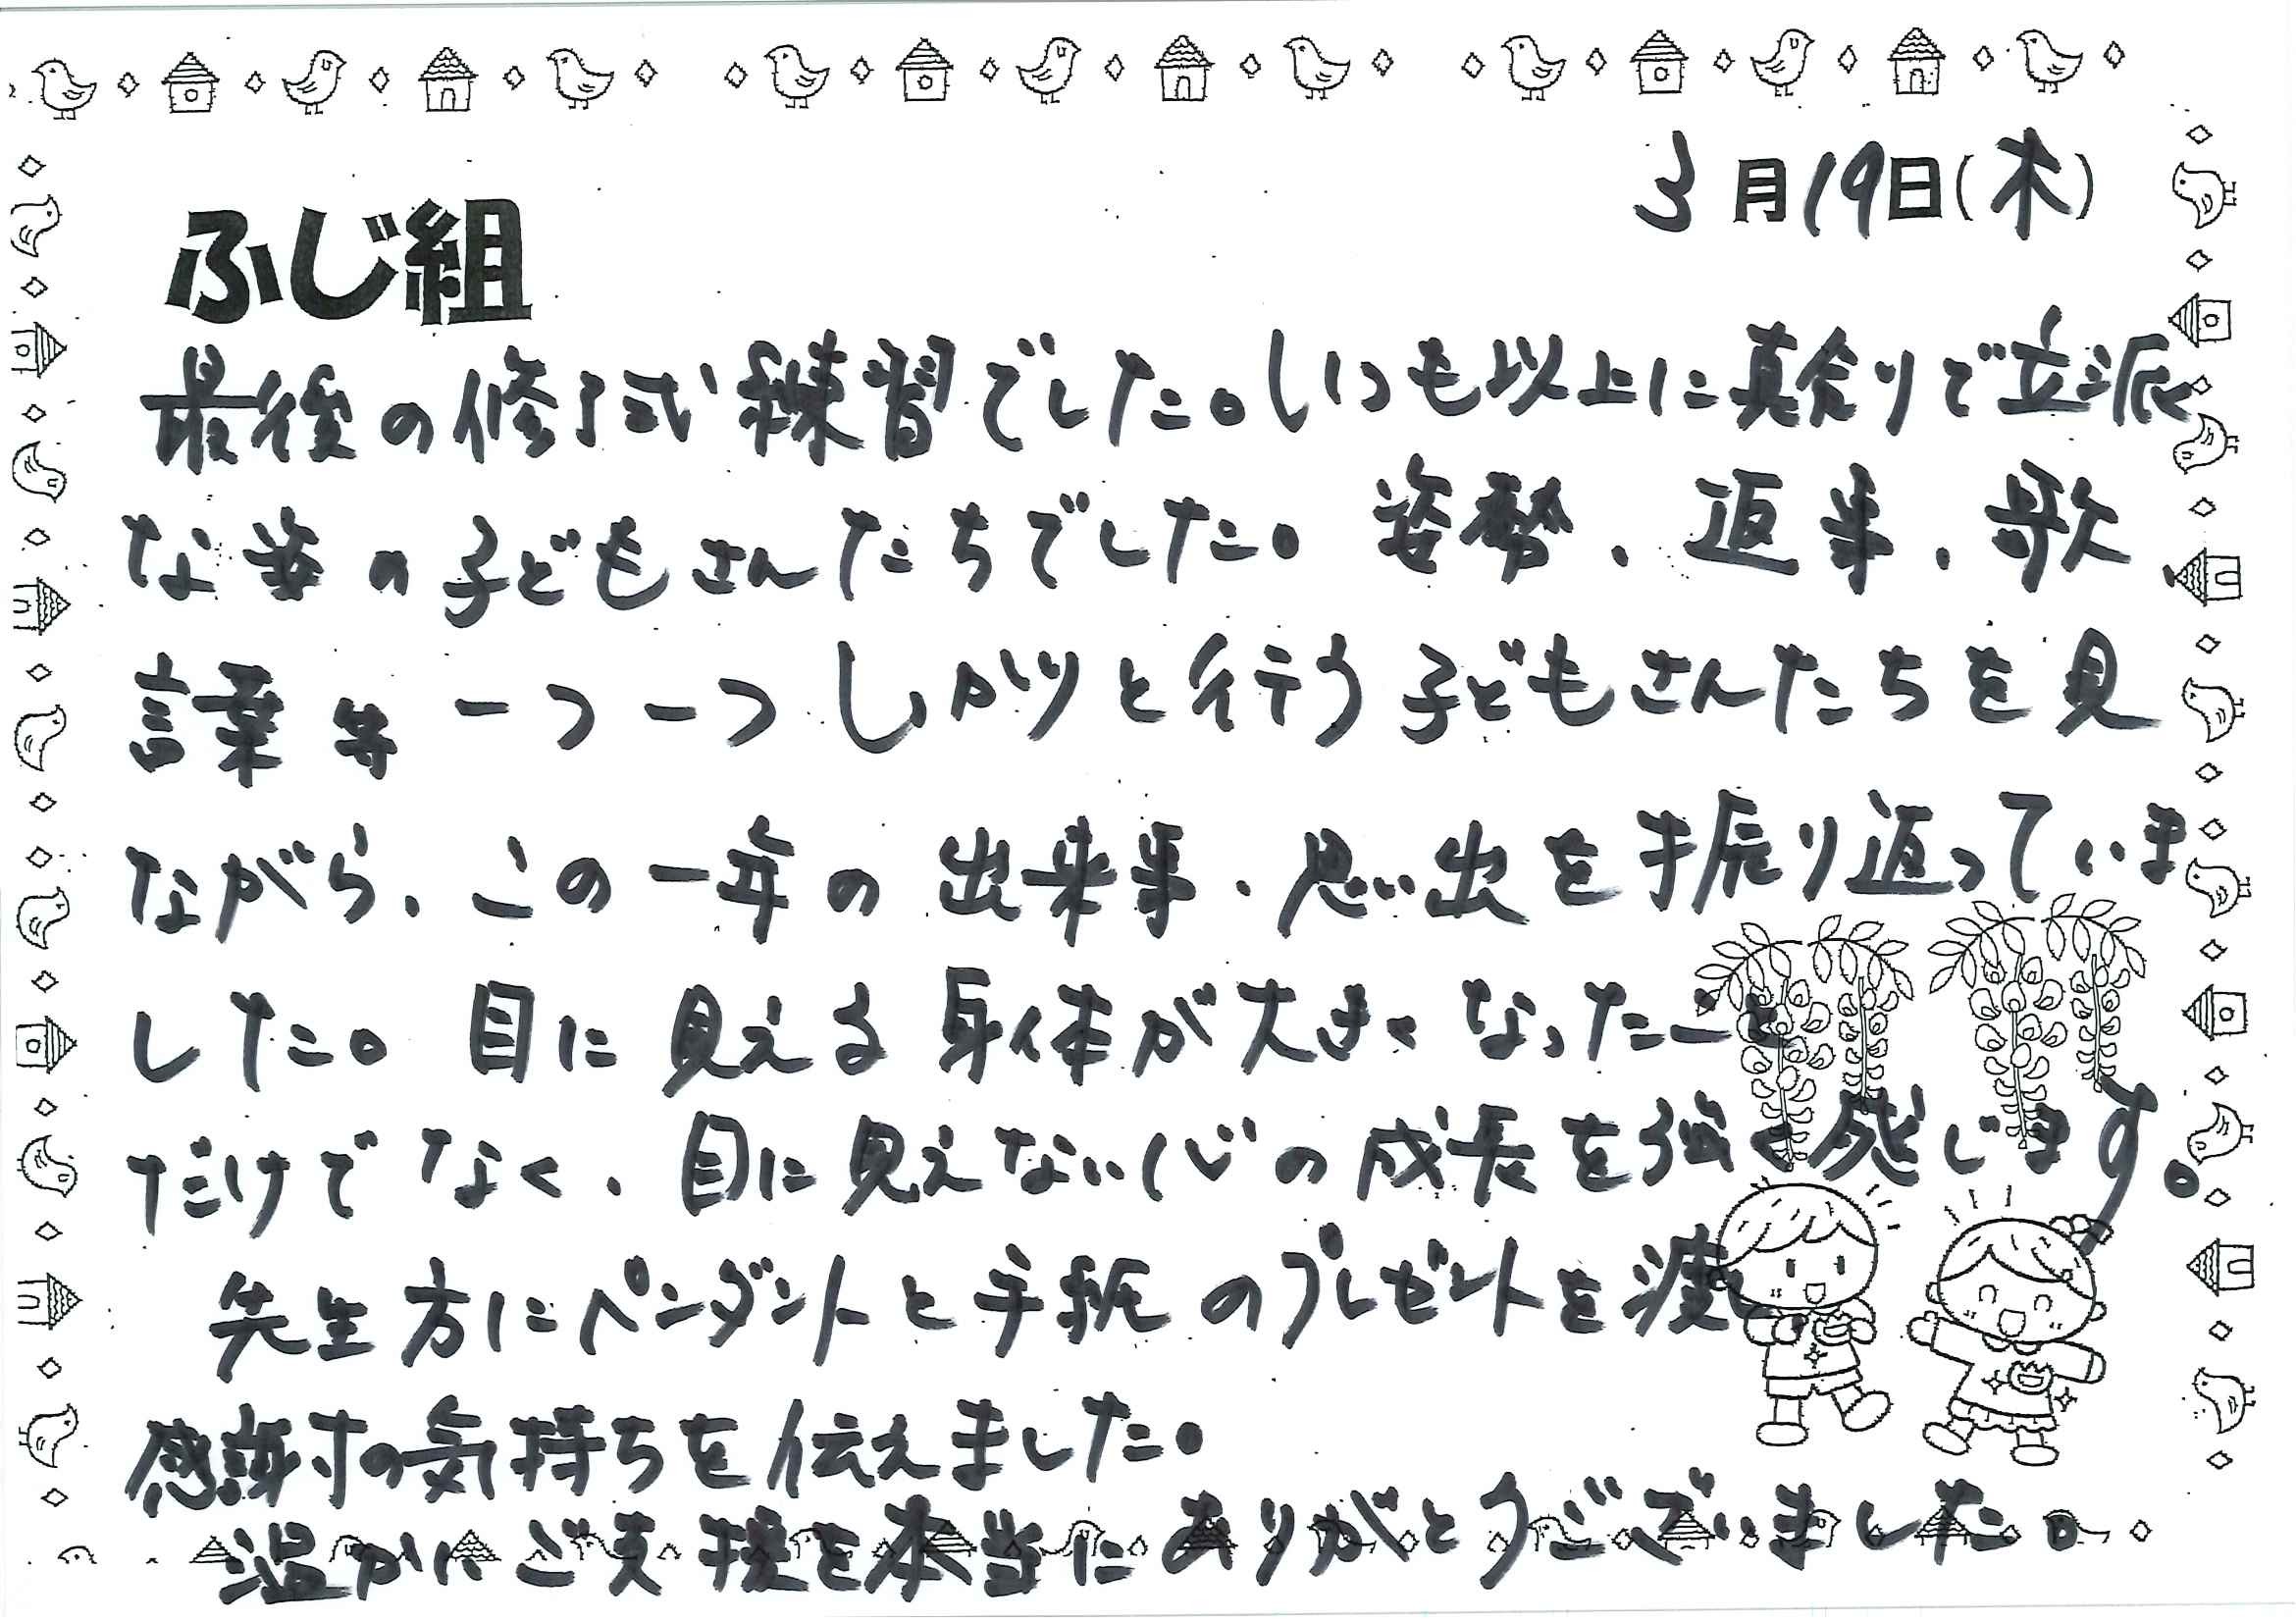 3月19日(木)
ふじ組
最後の修了式練習でした。いつも以上に真剣で立派
な姿の子どもさんたちでした。姿勢、返事、歌
言葉等一つ一つしっかりと行う子どもさんたちを見
ながら、この一年の出来事・思い出を振り返っていま
した。目に見える身体が大きくなったこと
だけでなく、目に見えない心の成長を強く感じます。
先生方にペンダントと手紙のプレゼントを渡し
感謝の気持ちを伝えました。
温かいご支援を本当にありがとうございました。